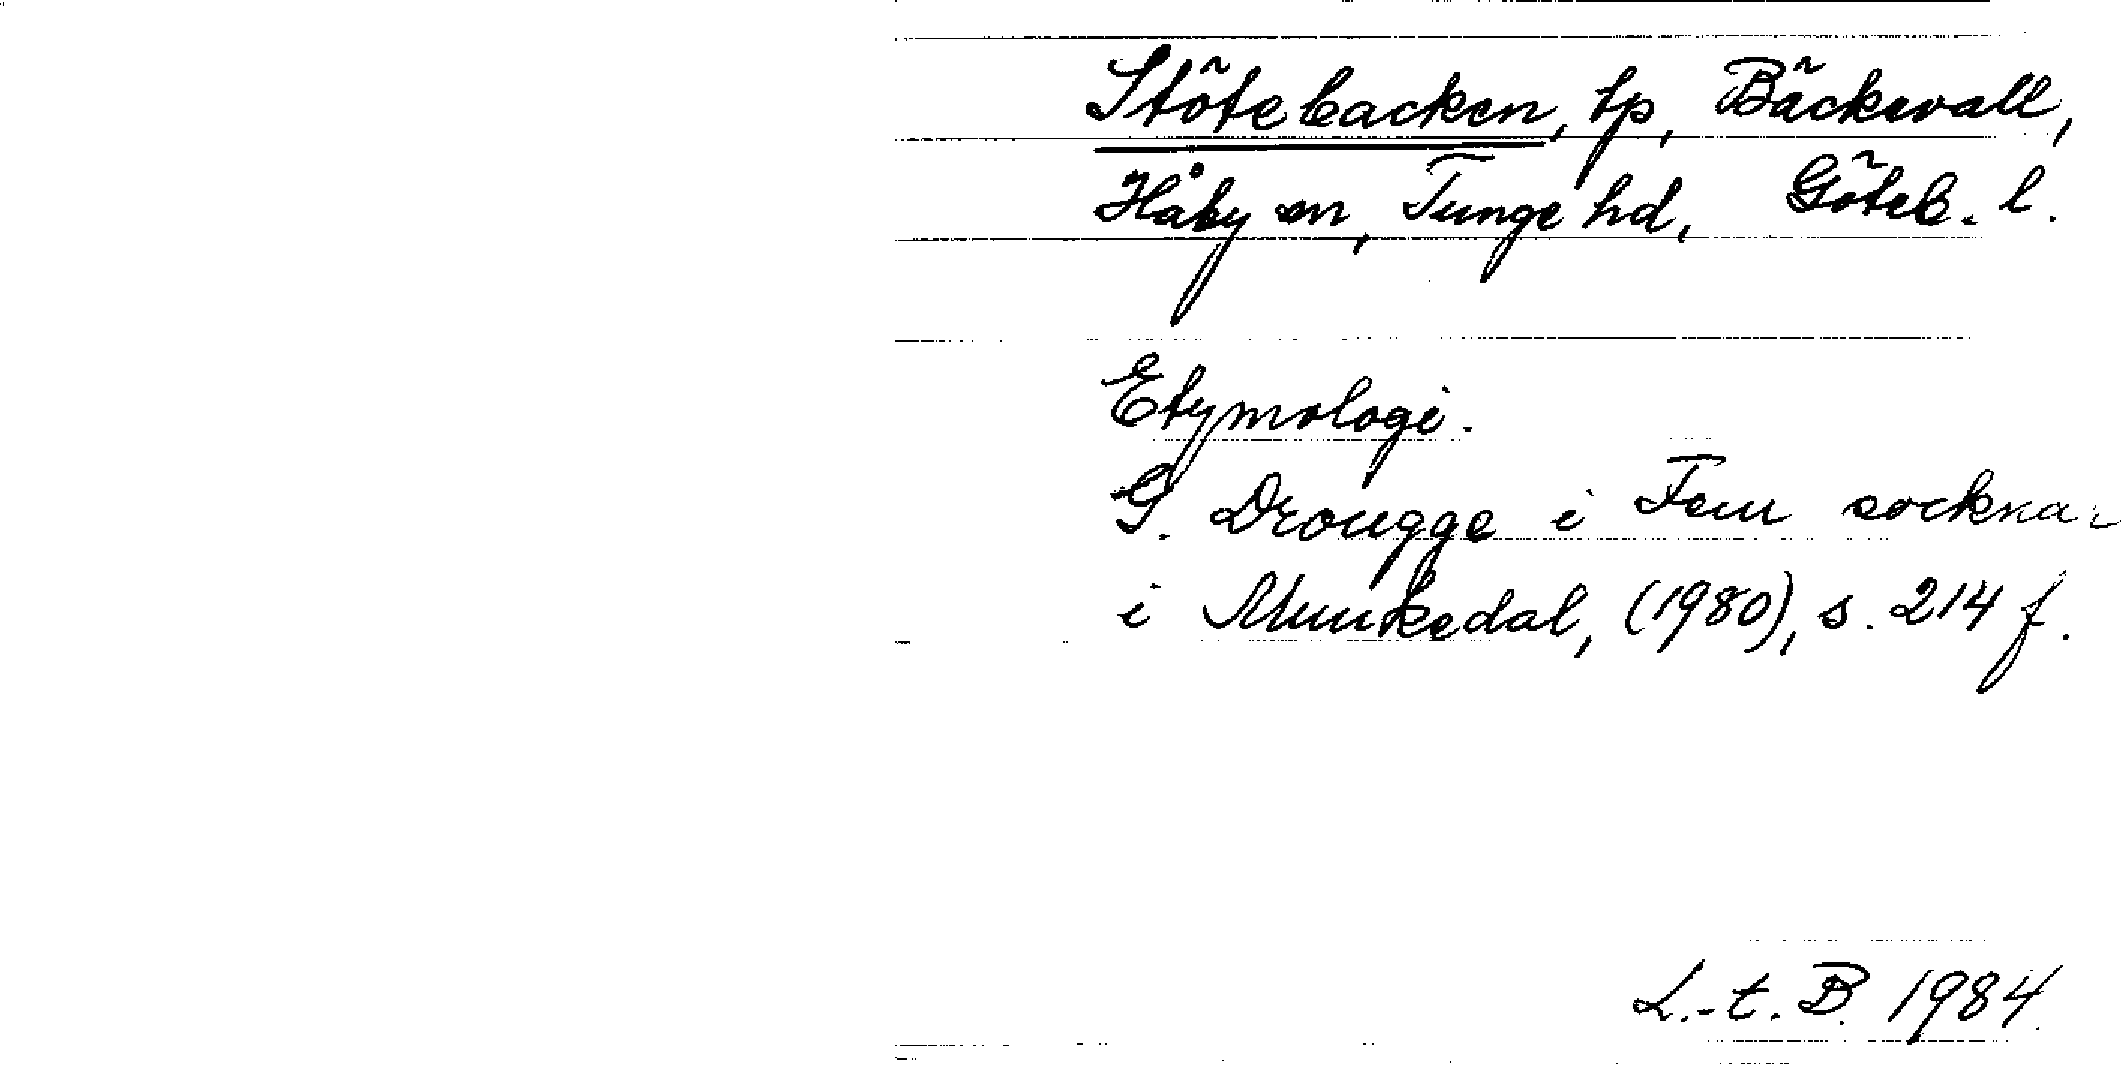 Stötebacken, tp, Bäckevall,
Håby sn, Tunge hd, Göteb. l.
Etymologi.
G. Drougge i Fem socknar
i Munkedal, (1980), s. 214 f.
L.-t. B. 1984.